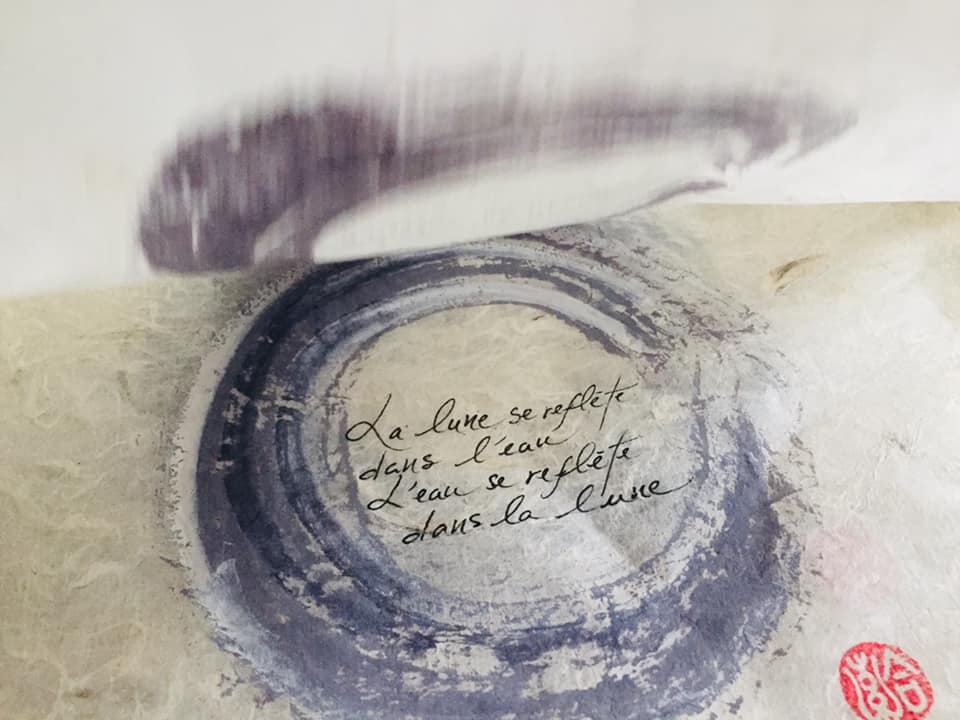 La lune se reflète
dans l'eau
L'eau se reflète
dans la lune